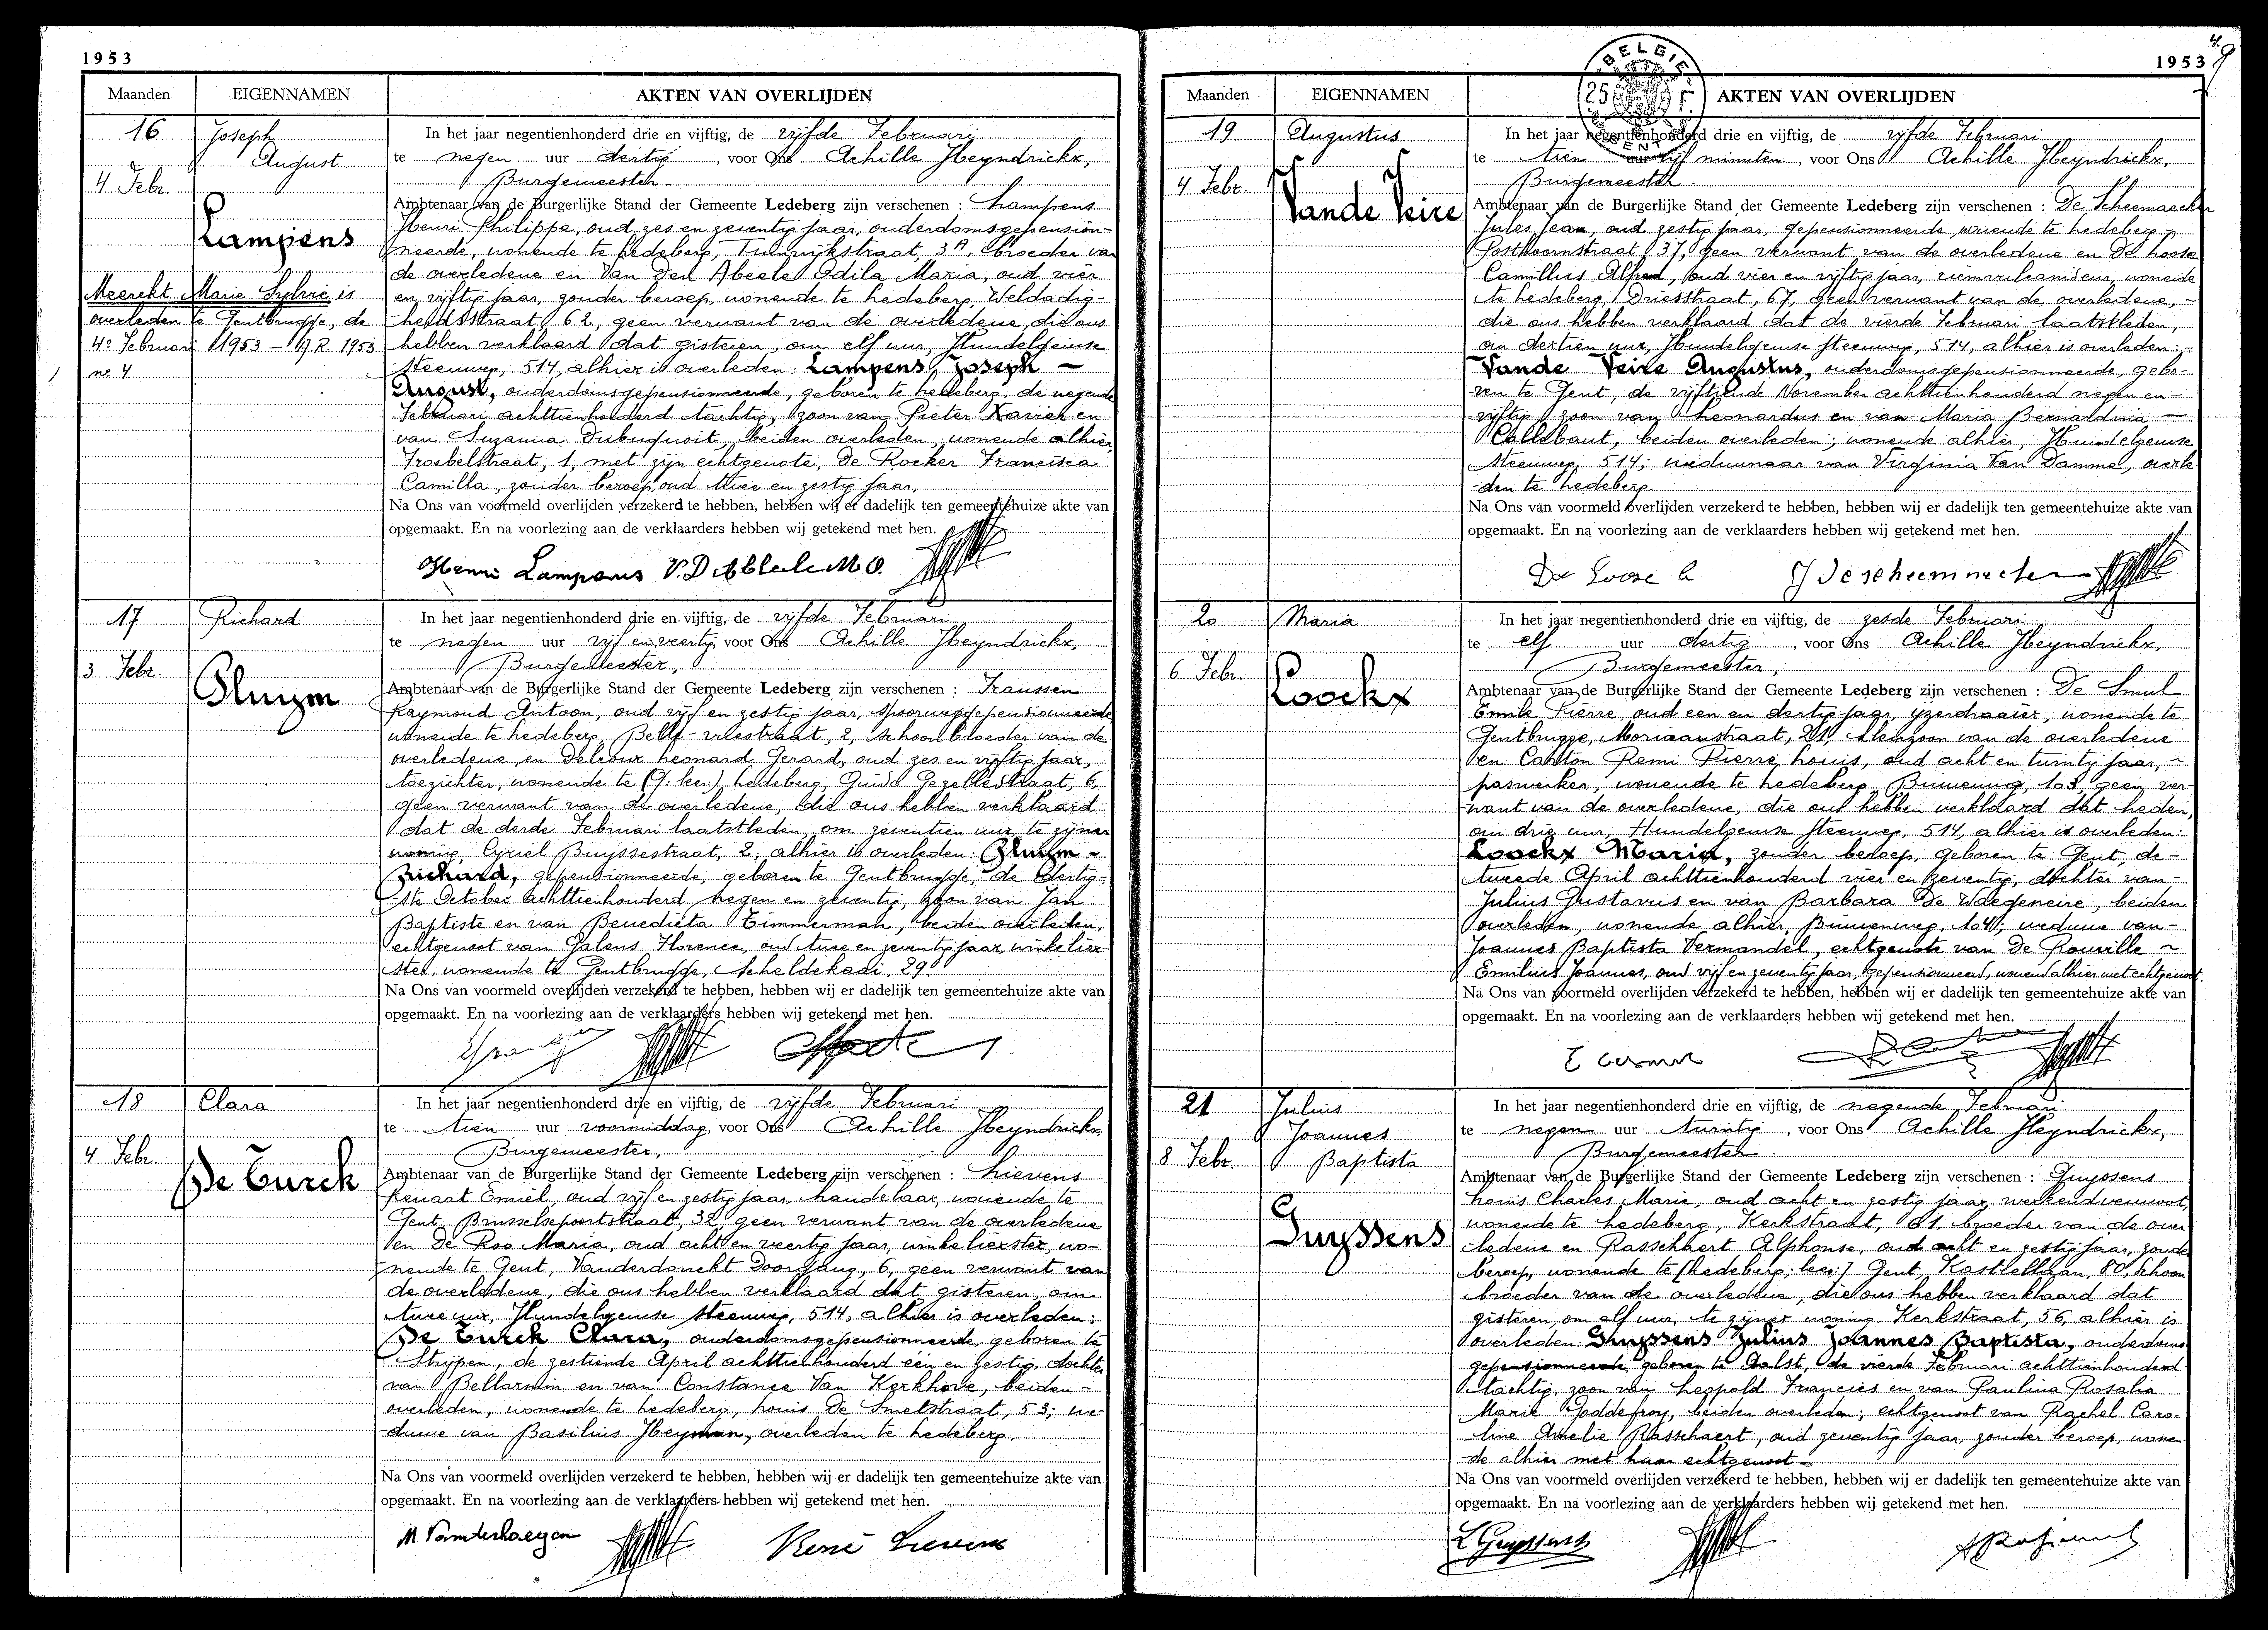 1953
Maanden EIGENNAMEN AKTEN VAN OVERLIJDEN
16 Joseph
August
4 Febr.
Lampens
Meerekt Marie Sylvie is
overleden te Gentbrugge, de
4e Februari 1953 – A.R. 1953
no 4
In het jaar negentienhonderd drie en vijftig, de vijfde Februari
te negen uur dertig, voor Ons Achille Heyndrickx,
Burgemeester
Ambtenaar van de Burgerlijke Stand der Gemeente Ledeberg zijn verschenen : Lampens
Henri Philippe, oud zes en zeventig jaar, ouderdomsgepension-
neerde, wonende te Ledeberg, Tuinwijkstraat, 3A, broeder van
de overledene en Van Den Abeele Odila Maria, oud vier
en vijftig jaar, zonder beroep, wonende te Ledeberg, Weldadig-
heidsstraat 62, geen verwant van de overledene, die ons
hebben verklaard dat gisteren, om elf uur, Hundelgemse
steenweg, 514, alhier is overleden: Lampens, Joseph –
August, ouderdomsgepensionneerde, geboren te Ledeberg, de negende
Februari achttienhonderd tachtig, zoon van Pieter Xavier en
van Suzanna Dubuquoit, beiden overleden, wonende alhier,
Froebelstraat, 1, met zijn echtgenote, De Rocker Francisca
Camilla, zonder beroep, oud twee en zestig jaar,
Na Ons van voormeld overlijden verzekerd te hebben, hebben wij er dadelijk ten gemeentehuize akte van
opgemaakt. En na voorlezing aan de verklaarders hebben wij getekend met hen.
Henri Lampens V.D Abbeele M O.
17 Richard
3 Febr.
Pluym
In het jaar negentienhonderd drie en vijftig, de vijfde Februari
te negen uur vijf en veertig, voor Ons Achille Heyndrickx,
Burgemeester,
Ambtenaar van de Burgerlijke Stand der Gemeente Ledeberg zijn verschenen : Franssen
Raymond Antoon, oud vijf en zestig jaar, spoorweggepensionneerde
wonende te Ledeberg, Belle-vuestraat, 2, schoonbroeder van de
overledene, en Delroux Leonard Gerard, oud zes en vijftig jaar,
toezichter, wonende te (G: lees:) Ledeberg, Guido Gezellestraat, 6,
geen verwant van de overledene, die ons hebben verklaard
dat de derde Februari laatstleden, om zeventien uur, te zijner
woning, Cyriel Buyssestraat, 2, alhier is overleden: Pluym –
Richard, gepensionneerde, geboren te Gentbrugge, de dertig-
ste October achttienhonderd negen en zeventig, zoon van Jan
Baptiste en van Benedicta Timmerman, beiden overleden,
echtgenoot van Galens Florence, oud twee en zeventig jaar, winkelier-
ster, wonende te Gentbrugge, Scheldekaai, 29.
Na Ons van voormeld overlijden verzekerd te hebben, hebben wij er dadelijk ten gemeentehuize akte van
opgemaakt. En na voorlezing aan de verklaarders hebben wij getekend met hen.
18 Clara
4 Febr.
De Turck
In het jaar negentienhonderd drie en vijftig, de vijfde Februari
te tien uur voormiddag, voor Ons Achille Heyndrickx,
Burgemeester,
Ambtenaar van de Burgerlijke Stand der Gemeente Ledeberg zijn verschenen : Lievens
Renaat Emiel, oud vijf en zestig jaar, handelaar, wonende te
Gent, Brusselsepoortstraat, 32, geen verwant van de overledene
en De Roo Maria, oud acht en veertig jaar, winkelierster, wo-
nende te Gent, Vanderdonckt Doorgang, 6, geen verwant van
de overledene, die ons hebben verklaard dat gisteren, om
twee uur, Hundelgemse steenweg, 514, alhier is overleden:
De Turck Clara, ouderdomsgepensionneerde geboren te
Strijpen, de zestiende April achttienhonderd één en zestig, dochter
van Bellarmin en van Constance Van Kerkhove, beiden –
overleden, wonende te Ledeberg, Louis De Smetstraat, 53; we-
duwe van Basilius Heyman, overleden te Ledeberg.
Na Ons van voormeld overlijden verzekerd te hebben, hebben wij er dadelijk ten gemeentehuize akte van
opgemaakt. En na voorlezing aan de verklaarders hebben wij getekend met hen.
M Vanderhaegen René Lievens
1953
4. 9
BELGIE
25 F.
Maanden EIGENNAMEN AKTEN VAN OVERLIJDEN
19 Augustus
4 Febr.
Vande Veire
In het jaar negentienhonderd drie en vijftig, de vijfde Februari
te tien uur vijf minuten, voor Ons Achille Heyndrickx,
Burgemeester
Ambtenaar van de Burgerlijke Stand der Gemeente Ledeberg zijn verschenen : De Scheemaecker
Jules Jean, oud zestig jaar, gepensionneerde, wonende te Ledeberg,
Posthoornstraat, 37, geen verwant van de overledene en De Loose
Camillus Alfred, oud vier en vijftig jaar, wonende
te Ledeberg, Driesstraat, 67, geen verwant van de overledene, –
die ons hebben verklaard dat de vierde Februari laatstleden,
om dertien uur, Hundelgemse steenweg, 514, alhier is overleden: –
Vande Veire Augustus, ouderdomsgepensionneerde, gebo-
ren te Gent, de vijftiende November achttienhonderd negen en –
vijftig, zoon van Leonardus en van Maria Bernaldina –
Callebaut, beiden overleden; wonende alhier, Hundelgemse
steenweg, 514; weduwnaar van Virginia Van Damme, overle-
den te Ledeberg.
Na Ons van voormeld overlijden verzekerd te hebben, hebben wij er dadelijk ten gemeentehuize akte van
opgemaakt. En na voorlezing aan de verklaarders hebben wij getekend met hen.
De Loose C J Descheemaecker
20 Maria
6 Febr.
Loockx
In het jaar negentienhonderd drie en vijftig, de zesde Februari
te elf uur dertig, voor Ons Achille Heyndrickx,
Burgemeester,
Ambtenaar van de Burgerlijke Stand der Gemeente Ledeberg zijn verschenen : De Smul
Emile Pierre, oud een en dertig jaar, ijzerdraaier, wonende te
Gentbrugge, Moriaanstraat, 21, kleinzoon van de overledene
en Canton Remi Pierre Louis, oud acht en twintig jaar, –
paswerker, wonende te Ledeberg, Binnenweg, 103, geen ver-
want van de overledene, die ons hebben verklaard dat heden,
om drie uur, Hundelgemse steenweg, 514, alhier is overleden:
Loockx Maria, zonder beroep, geboren te Gent, de –
tweede April achttienhonderd vier en zeventig, dochter van –
Julius Gustavus en van Barbara De Waegeneire, beiden
overleden, wonende alhier, Binnenweg, 104; weduwe van –
Joannes Baptista Vermandel, echtgenote van De Rouville –
Emilius Joannes, oud vijf en zeventig jaar, gepensionneerd, wonend alhier met echtgenoot.
Na Ons van voormeld overlijden verzekerd te hebben, hebben wij er dadelijk ten gemeentehuize akte van
opgemaakt. En na voorlezing aan de verklaarders hebben wij getekend met hen.
21 Julius
Joannes
8 Febr. Baptista
Guyssens
In het jaar negentienhonderd drie en vijftig, de negende Februari
te negen uur twintig, voor Ons Achille Heyndrickx,
Burgemeester
Ambtenaar van de Burgerlijke Stand der Gemeente Ledeberg zijn verschenen : Guyssens
Louis Charles Marie, oud acht en zestig jaar, werkend vennoot,
wonende te Ledeberg, Kerkstraat, 61, broeder van de over-
ledene en Rasschaert Alphonse, oud acht en zestig jaar, zonder
beroep, wonende te (Ledeberg; lees:) Gent, Kastellaan, 80, schoon
broeder van de overledene, die ons hebben verklaard dat
gisteren, om elf uur, te zijner woning Kerkstraat, 56, alhier is
overleden Guyssens Julius Joannes Baptista, ouderdoms
gepensionneerde geboren te Aalst, de vierde Februari achttienhonderd
tachtig, zoon van Leopold Francies en van Paulina Rosalia
Marie Goddefroy, beiden overleden; echtgenoot van Rachel Caro-
line Amelie Rasschaert, oud zeventig jaar, zonder beroep, wonen
de alhier met haar echtgenoot –
Na Ons van voormeld overlijden verzekerd te hebben, hebben wij er dadelijk ten gemeentehuize akte van
opgemaakt. En na voorlezing aan de verklaarders hebben wij getekend met hen.
L Guyssens